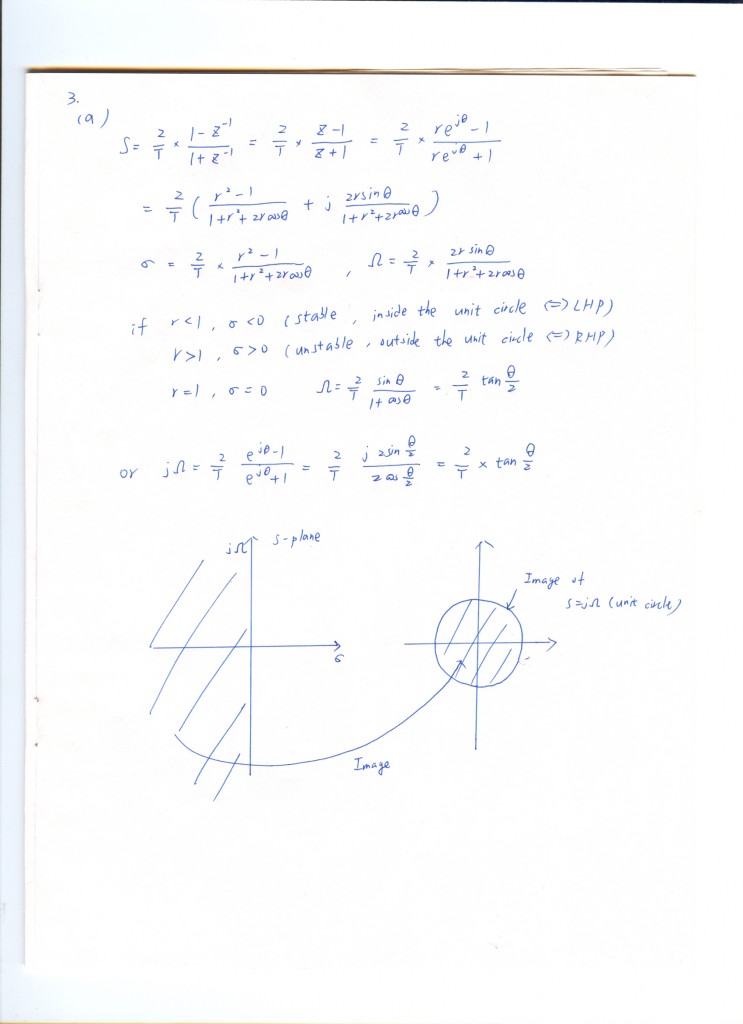 3.
(a)
S = 2/T × (1 - z^-1)/(1 + z^-1) = 2/T × (z - 1)/(z + 1) = 2/T × (re^jθ - 1)/(re^jθ + 1)
= 2/T ( (r² - 1)/(1 + r² + 2r cosθ) + j (2r sinθ)/(1 + r² + 2r cosθ) )
σ = 2/T × (r² - 1)/(1 + r² + 2r cosθ) , Ω = 2/T × (2r sinθ)/(1 + r² + 2r cosθ)
if r<1, σ<0 (stable, inside the unit circle <=> LHP)
r>1, σ>0 (unstable, outside the unit circle <=> RHP)
r=1, σ=0 Ω = 2/T sinθ/(1 + cosθ) = 2/T tan θ/2
or jΩ = 2/T (e^jθ - 1)/(e^jθ + 1) = 2/T (j 2sin θ/2)/(2cos θ/2) = 2/T × tan θ/2
jΩ S-plane
σ
Image of
S=jΩ (unit circle)
Image